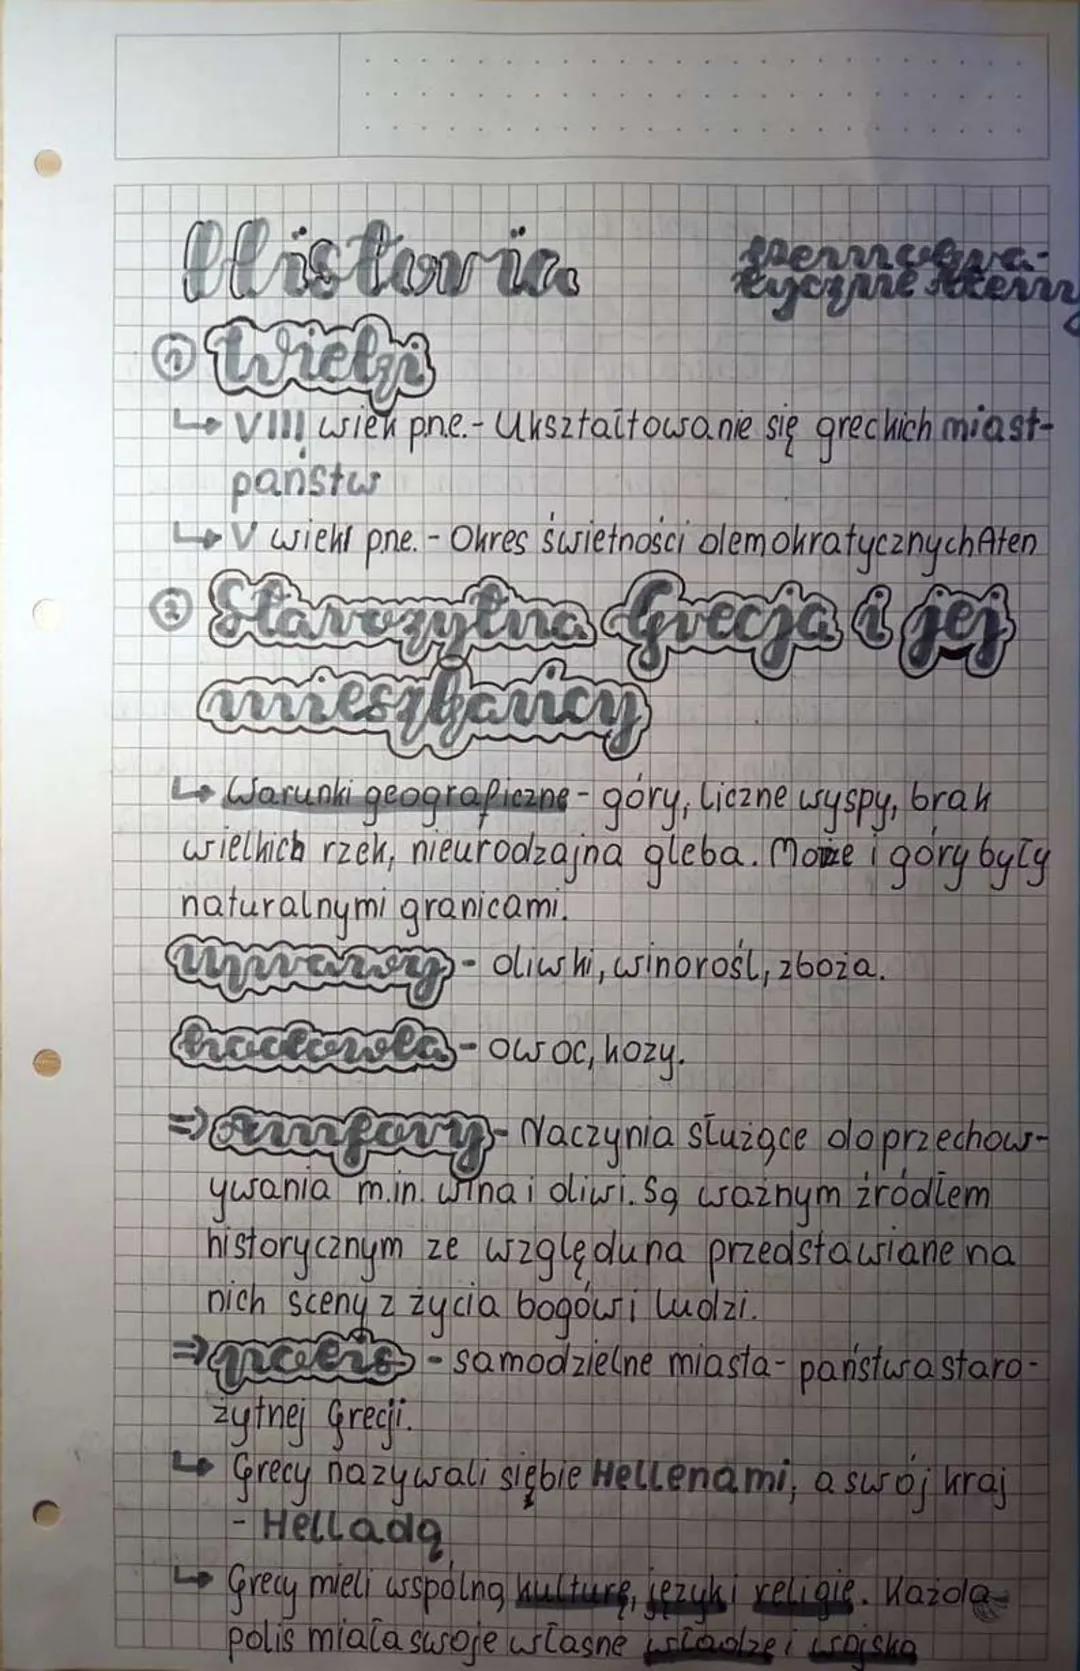 Historia
Demokra-
tyczne Ateny
① Wieki
↳ VIII wiek p.n.e. - Ukształtowanie się greckich miast-
państw
↳ V wiek p.n.e. - Okres świetności demokratycznych Aten
② Starożytna Grecja i jej
mieszkańcy
↳ Warunki geograficzne - góry, liczne wyspy, brak
wielkich rzek, nieurodzajna gleba. Morze i góry były
naturalnymi granicami.
uprawy - oliwki, winorośl, zboża.
hodowla - owoc, kozy.
⇒ Amfory - Naczynia służące do przechow-
ywania m.in. wina i oliwi. Są ważnym źródłem
historycznym ze względu na przedstawiane na
nich sceny z życia bogów i ludzi.
⇒ polis - samodzielne miasta-państwa staro-
żytnej Grecji.
↳ Grecy nazywali siębie Hellenami, a swój kraj
- Helladą
↳ Grecy mieli wspólną kulturę, język i religię. Każda
polis miała swoje własne władze i wojsko